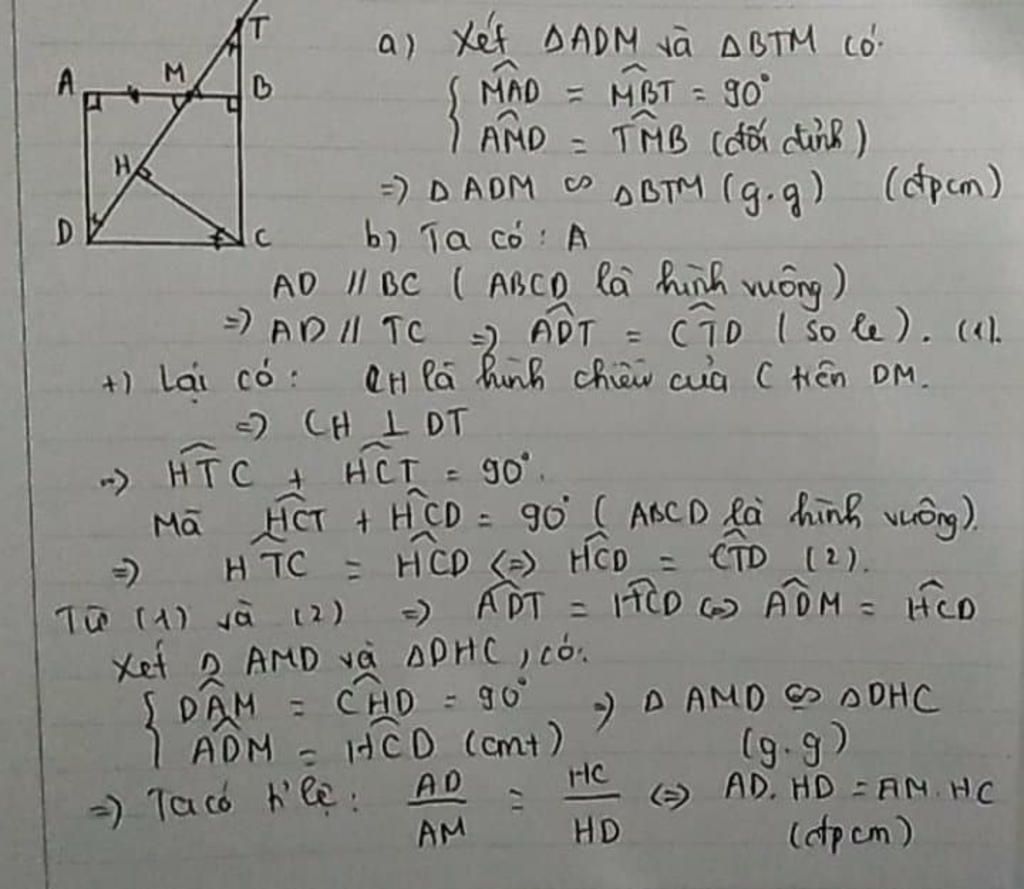 T
A M B
H
D C
a) Xét ΔADM và ΔBTM có:
{ M̂AD = M̂BT = 90°
ÂMD = T̂MB (đối đỉnh)
=> Δ ADM ∽ ΔBTM (g.g) (đpcm)
b) Ta có: A
AD // BC ( ABCD là hình vuông)
=> AD // TC => ÂDT = CT̂D ( so le). (1).
+) Lại có: CH là hình chiếu của C trên DM.
=> CH ⊥ DT
=> HT̂C + HĈT = 90°.
Mà HĈT + HĈD = 90° ( ABCD là hình vuông).
=> HT̂C = HĈD <=> HĈD = CT̂D (2).
Từ (1) và (2) => AD̂T = HĈD <=> AD̂M = HĈD
Xét Δ AMD và ΔDHC, có:
{ DÂM = CĤD = 90° => Δ AMD ∽ ΔDHC
AD̂M = HĈD (cmt) (g.g)
=> Ta có lệ: AD/AM = HC/HD <=> AD. HD = AM. HC
(đpcm)